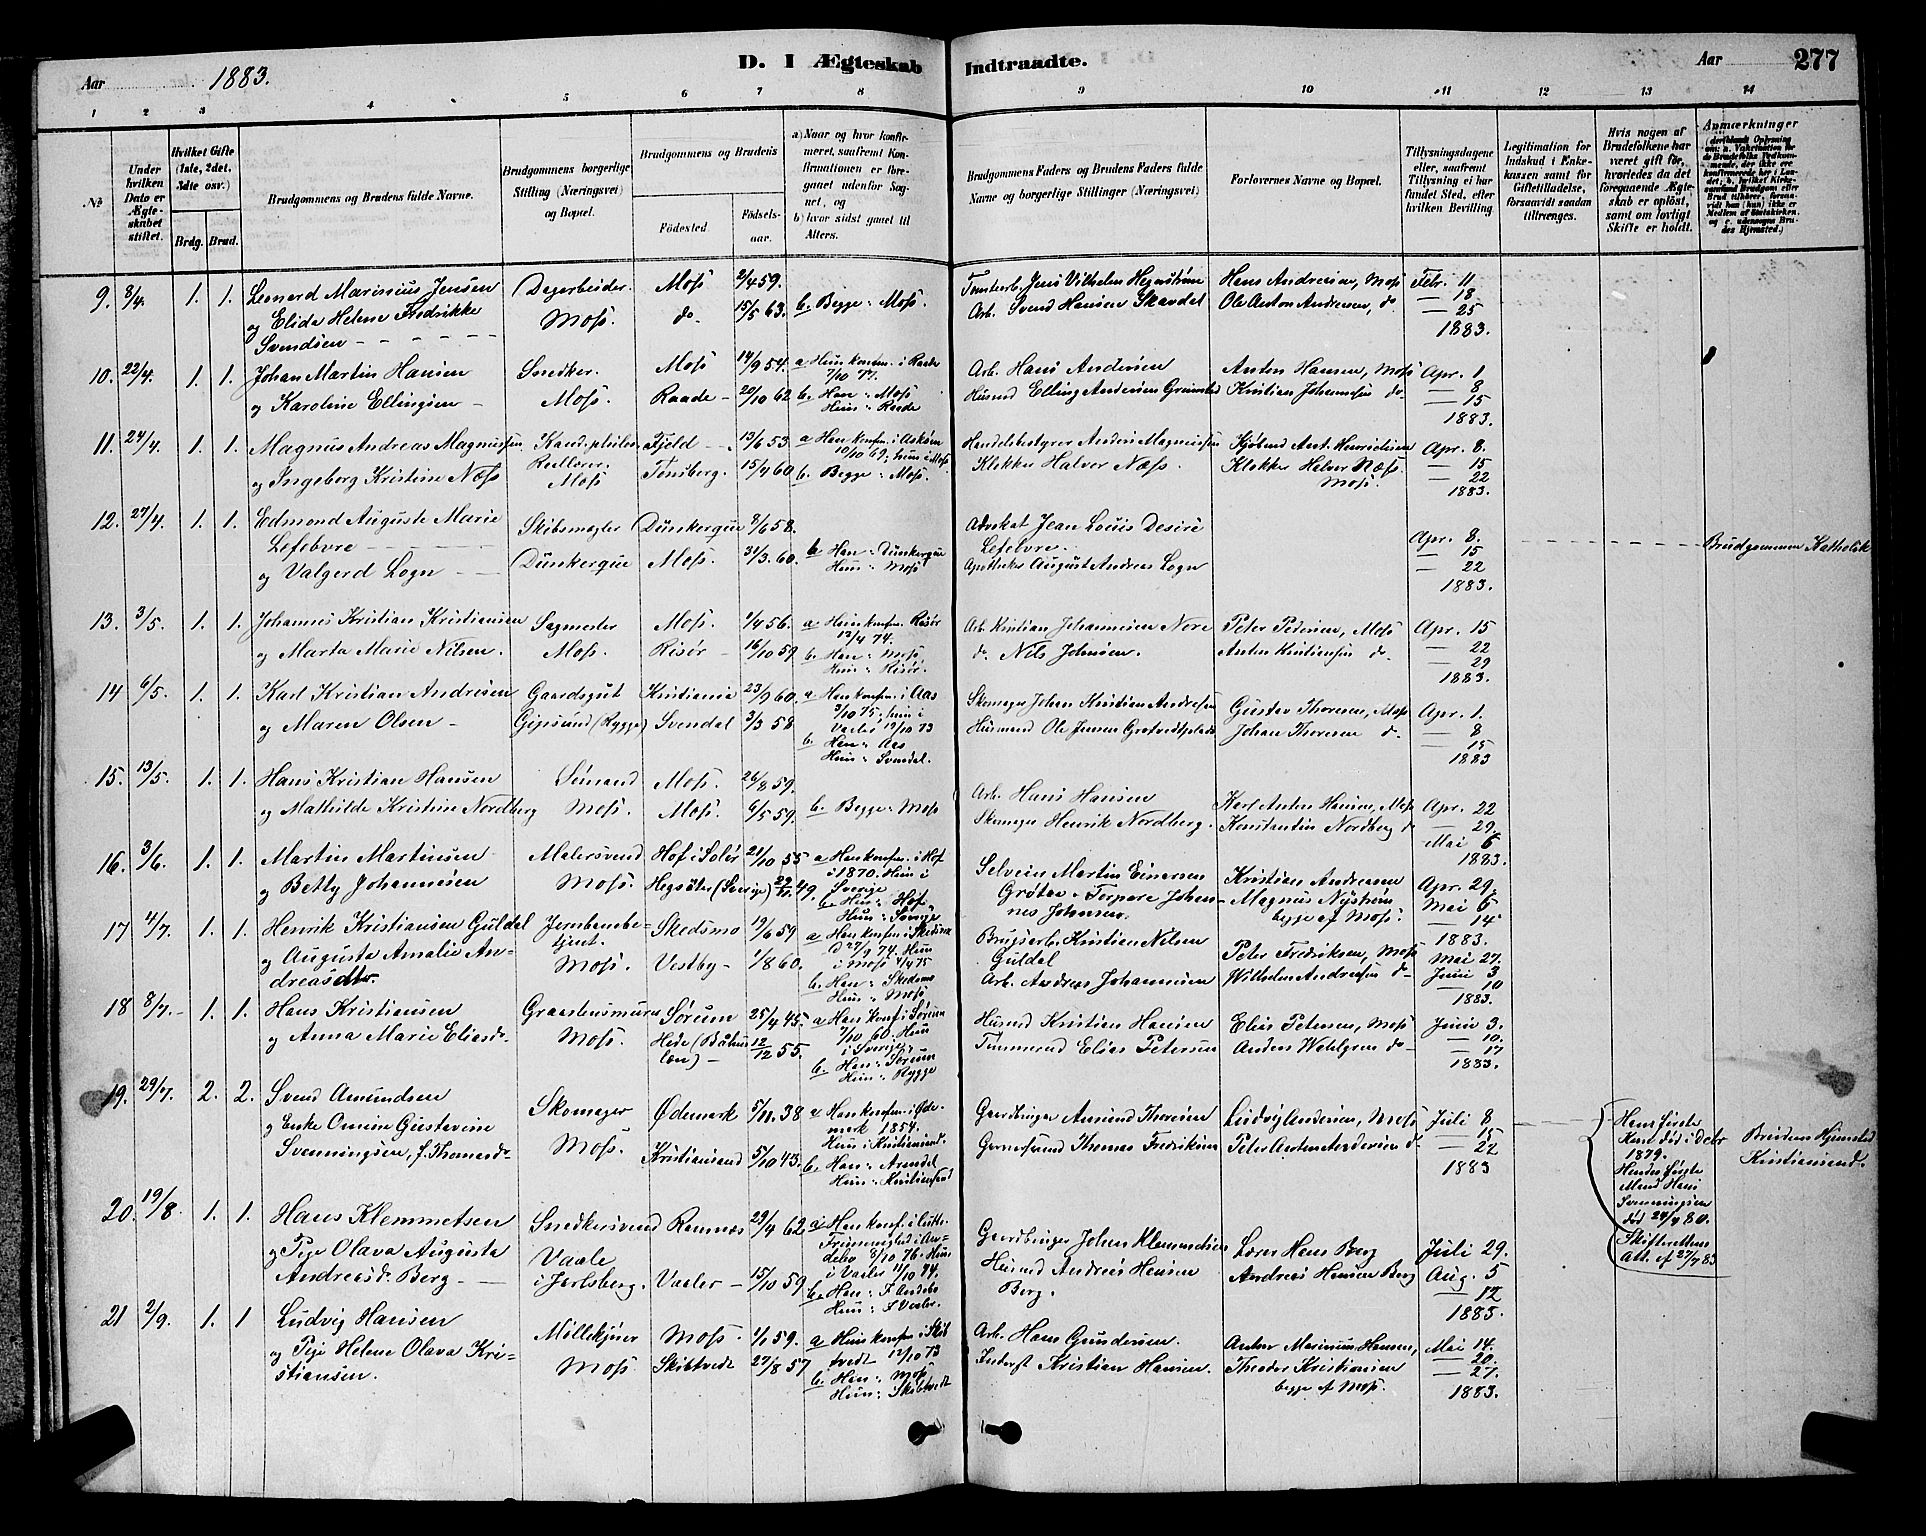 Aar 1883. D. I Ægteskab Indtraadte. Aar 277
1 2 3 4 5 6 7 8 9 10 11 12 13 14
No
Under hvilken Dato er Ægteskabet stiftet.
Hvilket Gifte (1ste, 2det, 3die osv.)
Brdg. Brud.
Brudgommens og Brudens fulde Navne.
Brudgommens borgerlige Stilling (Næringsvei) og Bopæl.
Brudgommens og Brudens
Fødested
Fødselsaar.
a) Naar og hvor konfirmeret, saafremt Konfirmationen er foregaaet udenfor Sognet, og
b) hvor sidst gaaet til Alters.
Brudgommens Faders og Brudens Faders fulde Navne og borgerlige Stillinger (Næringsvei)
Forlovernes Navne og Bopæl.
Tillysningsdagene eller, saafremt Tillysning ei har fundet Sted, efter hvilken Bevilling.
Legitimation for Indskud i Enkekassen samt for Giftetilladelse, forsaavidt saadan tiltrænges.
Hvis nogen af Brudefolkene har været gift før, hvorledes da det foregaaende Ægteskab er opløst, samt om lovligt Skifte er holdt.
Anmærkninger
9. 8/4. 1. 1. Leonard Marinius Jensen
og Elida Helene Fredrikke
Svendsen
Dagarbeider.
Moss.
Moss 2/4 59.
do. 15/5 63.
b. Begge: Moss.
Jens Vilhelm
Arb. Svend Hansen Skavdal
Hans Andresen, Moss
Ole Anton Andresen, do
Febr. 11
— 18
— 25
1883.
10. 22/4. 1. 1. Johan Martin Hansen
og Karoline Ellingsen
Snedker.
Moss.
Moss 14/9 54.
Raade 20/10 62
a Hun konfm. i Raade
7/10 77.
b. Han: Moss
Hun: Raade
Arb. Hans Andersen
Husmd Elling Andersen Grimsted
Anton Hansen, Moss
Kristian Johannesen do
Apr. 1
— 8
— 15
1883.
11. 24/4. 1. 1. Magnus Andreas Magnussen
og Ingeborg Kristine Næss
Kand. philos.
Redktør.
Moss
Fjeld 13/6 53.
Tønsberg. 15/4 60.
a Han konfm. i Askøen
10/10 69; hun i Moss
b. Begge: Moss.
Handelsbestyrer Anders Magnussen
Klokker Halvor Næss.
Kjøbmd Ant. Henrichsen
Klokker Halvor Næss.
Moss.
Apr. 8.
— 15
— 22
1883.
12. 27/4. 1. 1. Edmond Auguste Marie
Lefebvre
og Valgerd Logn
Skibsmægler
Dunkerque
Dunkerque 8/6 58.
Moss. 31/3. 60.
b Han: Dunkerque
Hun: Moss
Advokat Jean Louis Desiré
Lefebvre.
Apotheker August Andreas Logn
Apr. 8.
— 15
— 22
1883.
Brudgommen Katholik
13. 3/5. 1. 1. Johannes Kristian Kristiansen
og Marta Marie Nilsen.
Sagmester
Moss.
Moss. 1/4 56.
Risør 16/10 59
a. Hun konfm. Risør
12/4 74.
b. Han: Moss
Hun: Risør.
Arb. Kristian Johannesen Nore
do. Nils Johnsen.
Peter Pedersen, Moss
Anton Kristiansen do
Apr. 15
— 22
— 29
1883.
14 6/5. 1. 1. Karl Kristian Andresen
og Maren Olsen
Gaardsgut
Gipsund (Rygge)
Kristiania 23/9 60.
Svendal 3/3 58
a. Han konfm. i Aas
3/10 75; hun i
Vaaler 19/10 73
b. Han: Aas
Hun: Svendal.
Skomager Johan Kristian Andresen
Husmand Ole Jensen Grotvedtplads
Gustav Thoresen, Moss
Johan Thoresen do
Apr. 1.
— 8
— 15
1883
15. 13/5. 1. 1. Hans Kristian Hansen
og Mathilde Kristine Nordberg
Sømand
Moss.
Moss. 26/8 59.
Moss. 6/5 59.
b. Begge: Moss
Arb. Hans Hansen
Skomager Henrik Nordberg.
Karl Anton Hansen, Moss
Konstantin Nordberg do
Apr. 22
— 29.
Mai 6
1883.
16. 3/6. 1. 1. Martin Martinsen
og Betty Johannesen
Malersvend
Moss.
Hof i Solør 21/10 55
(Sverige) 49.
a Han konfm. i Hof
i 1870. Hun i
Sverige.
b Han: Hof
Hun: Sverige
Selveier Martin Einersen
Torpare Johannes Johansen.
Kristian Andreasen
Magnus Nystrøm
begge af Moss.
Apr. 29.
Mai 6
— 14
1883.
17 4/7. 1. 1. Henrik Kristiansen Guldal
og Augusta Amalie Andreasdtr.
Jernbanebetjent.
Moss.
Skedsmo 19/6 59
Vestby 1/8 60.
a Han konfm. i Skedsmo
d 27/9 74. Hun
i Moss 4/4 75
b. Han: Skedsmo
Hun: Moss.
Brugsarb. Kristian Nilsen
Guldal
Arb. Andreas Johannesen
Peter Fredriksen, Moss
Wilhelm Andreasen do
Mai 27.
Juni 3
— 10
1883.
18 8/7. 1. 1. Hans Kristiansen
og Anna Marie Eliasd.
Graastensmurer
Moss.
Sørum 25/4 45.
Hede (Bohuslen) 12/12 55.
a Han konf. i Sørum
7/10 60. Hun
i Sverige.
b. Han: Sørum
Hun: Rygge
Husmd Kristian Hansen
Tømmermd Elias Petersen
Elias Petersen, Moss
Anders Wahlgren do
Juni 3.
— 10.
— 17
1883.
19. 29/7. 2. 2. Svend Amundsen
og Enke Gustavine
Svenningsen, f. Thomasd.
Skomager
Moss.
Ødemark 5/11. 38
Kristiansand 5/10 43.
a Han konfm. i Ødemark 1854.
Hun i Kristiansand.
b. Han: Arendal
Hun: Kristiansand
Gaardbruger Amund Thoresen
Thomas Fredriksen
Ludvig Andersen, Moss
Peter Anton Andersen do
Juli 8
— 15
— 22
1883
Hans første
Kone død i Decbr
1879.
Hendes første
Mand Hans
Svenningsen
død 24/4 80.
Skifterettens
Att. af 27/7 83
Brudens Hjemsted
Kristiansand.
20. 19/8. 1. 1. Hans Klemmetsen
og Peje Olava Augusta
Andreasd. Berg
Snedkersvend
Vaale
i Jarlsberg.
Ramnes 29/4 62
Vaaler 15/10 59
a. Han konf. i Luth.
Frimenighed i Andebo 8/10 76. Hun
i Vaaler 11/10 74.
b. Han: F. Andebo
Hun: Vaaler.
Gaardbruger Johan Klemmedsen
Husmd Andreas Hansen
Berg.
Lærer Hans Berg
Andreas Hansen Berg
Juli 29.
Aug. 5
— 12
1885.
21 2/9. 1. 1 Ludvig Hansen
og Peje Helene Olava Kristiansen.
Møllekjører
Moss
Moss. 1/1 59.
Skibtvedt 27/8 57
a Hun konfm. i Skibtvedt 12/10 73
b. Han: Moss
Hun: Skibtvedt
Arb. Hans Gundersen.
Inderst Kristian Hansen.
Anton Marinius Hansen,
Theodor Kristiansen
begge af Moss.
Mai 14.
— 20.
— 27.
1883.